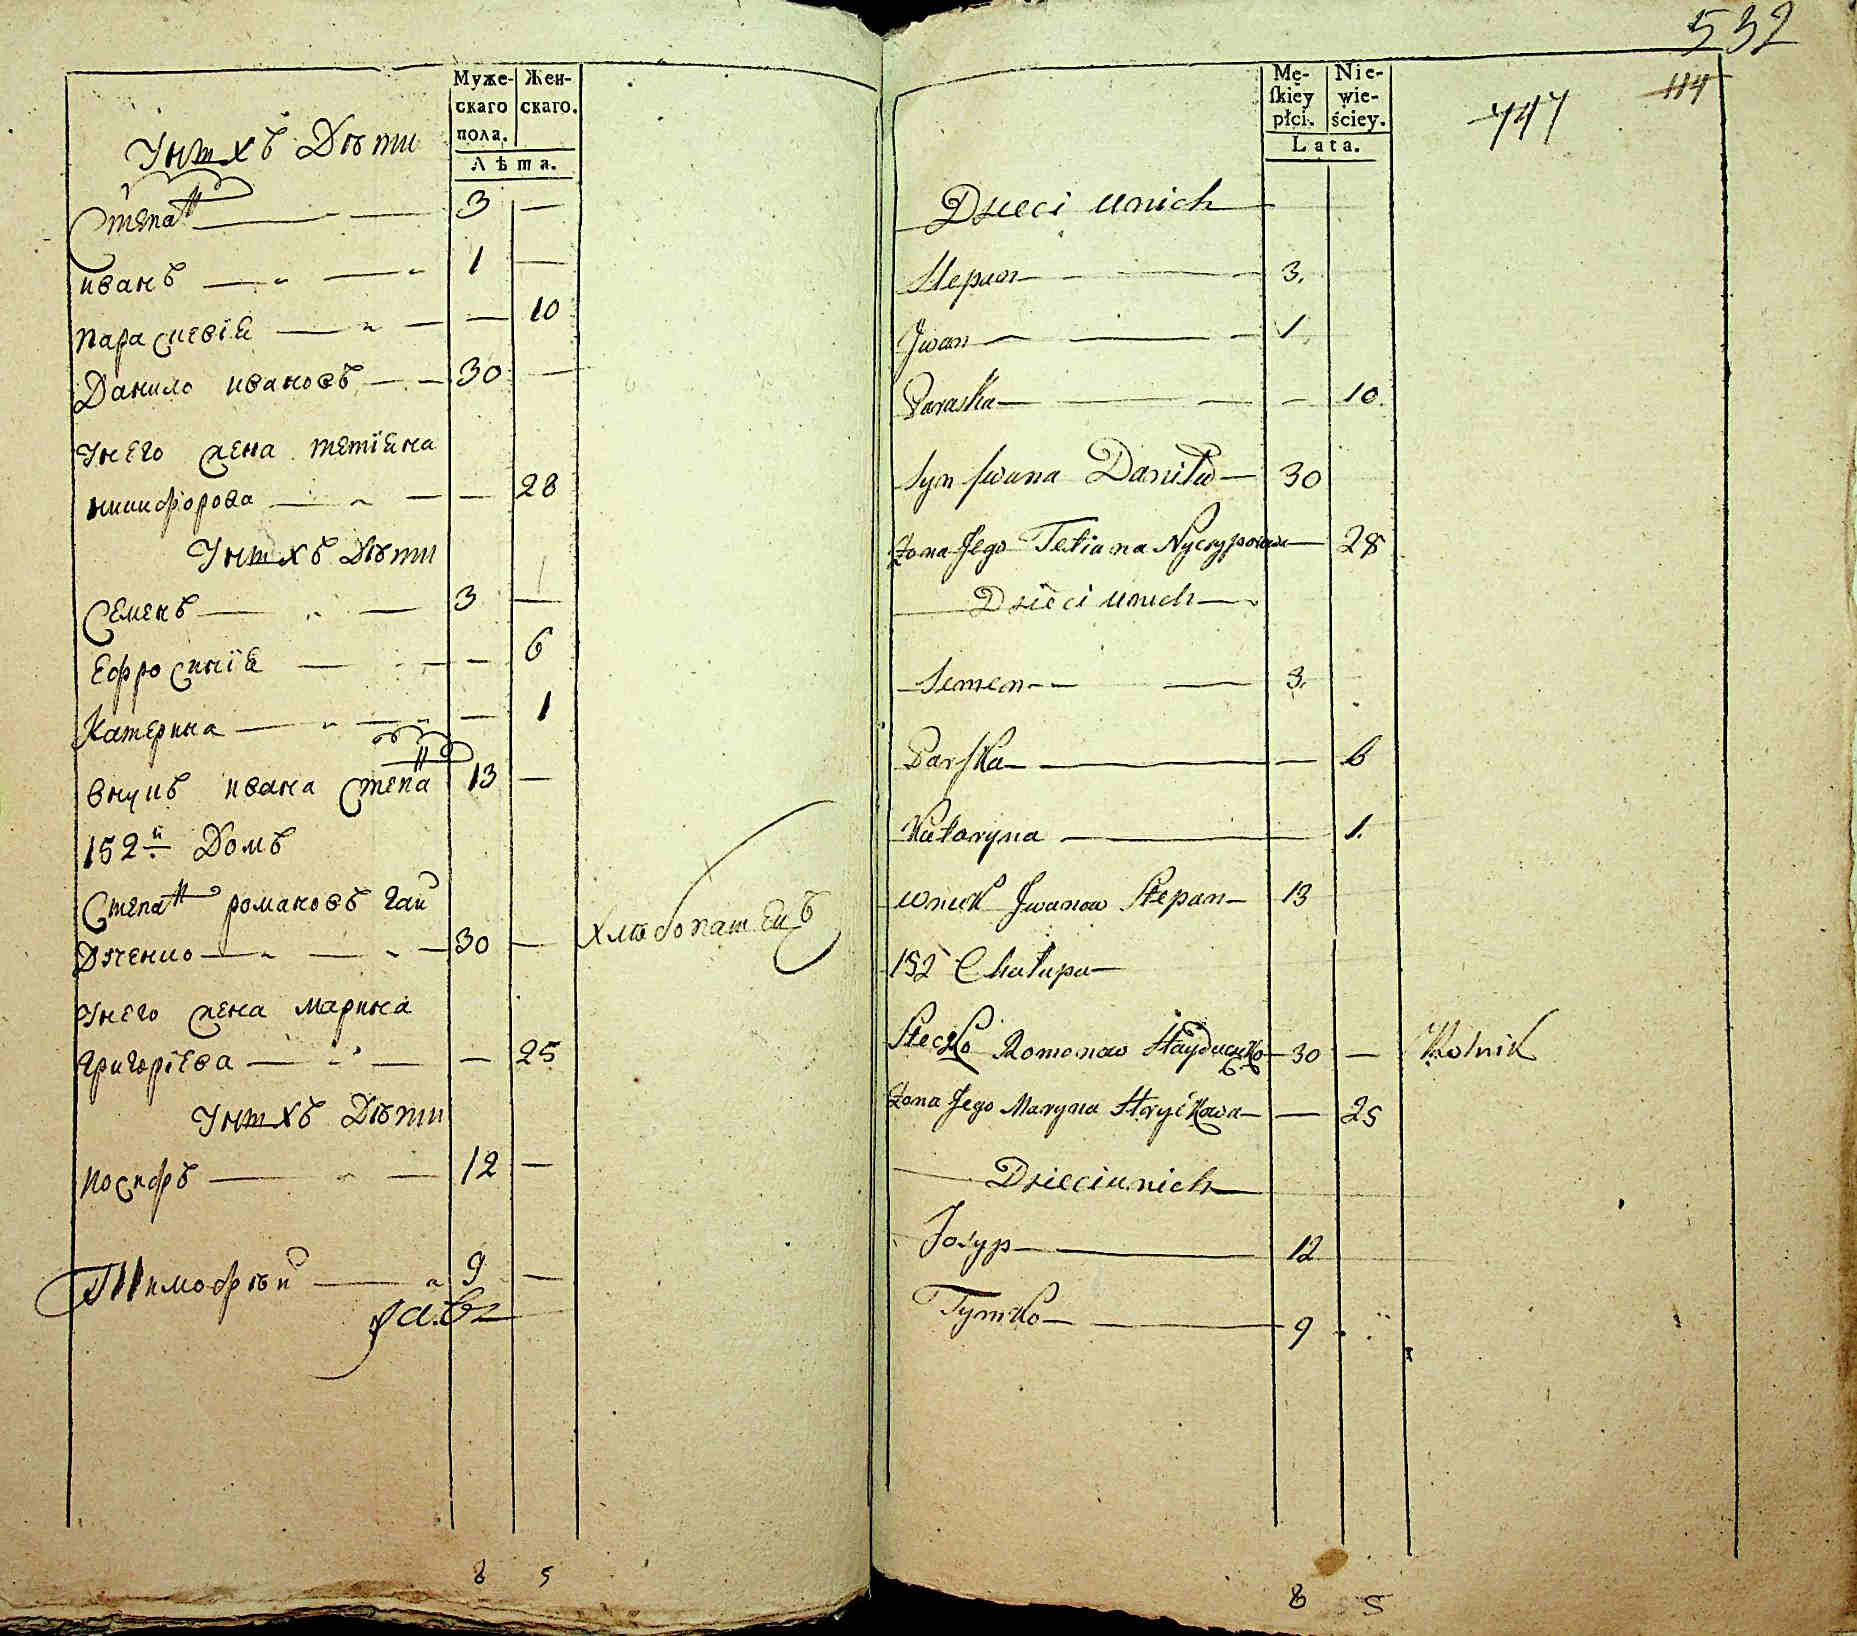 Муже-
скаго
пола.
Жен-
скаго.
Лѣта.
Унихъ Дѣти
Степанъ 3 —
иванъ 1 —
параскевїя — 10
Данило ивановъ 30 —
Унего жена тетїяна
никифорова — 28
Унихъ Дѣти
Семенъ 3 —
Ефросинїя — 6
Катерина — 1
внукъ ивана Степанъ 13 —
152й Домъ
Степанъ романовъ гай
дученко 30 — Хлѣбопашецъ
Унего жена марина
григорїева — 25
Унихъ Дѣти
иосифъ 12 —
Тимофѣй 9 —
8 5
532
114
Mę-
ſkiey
płci.
Nie-
wie-
ściey.
Lata.
Dzieci unich
Stepan 3.
Jwan 1
Paraska — 10
Syn Jwana Daniło 30
Żona Jego Tetiana Nyczyporowa 28
Dzieci unich
Semen 3.
Parska — 6
Kataryna — 1.
wnuk Jwanow Stepan 13
152 Chałupa
Stecko Romanow Hayduczko 30 — Rolnik
Żona Jego Maryna Hryćkowa — 25
Dzieci unich
Josyp 12
Tymko 9
8 5